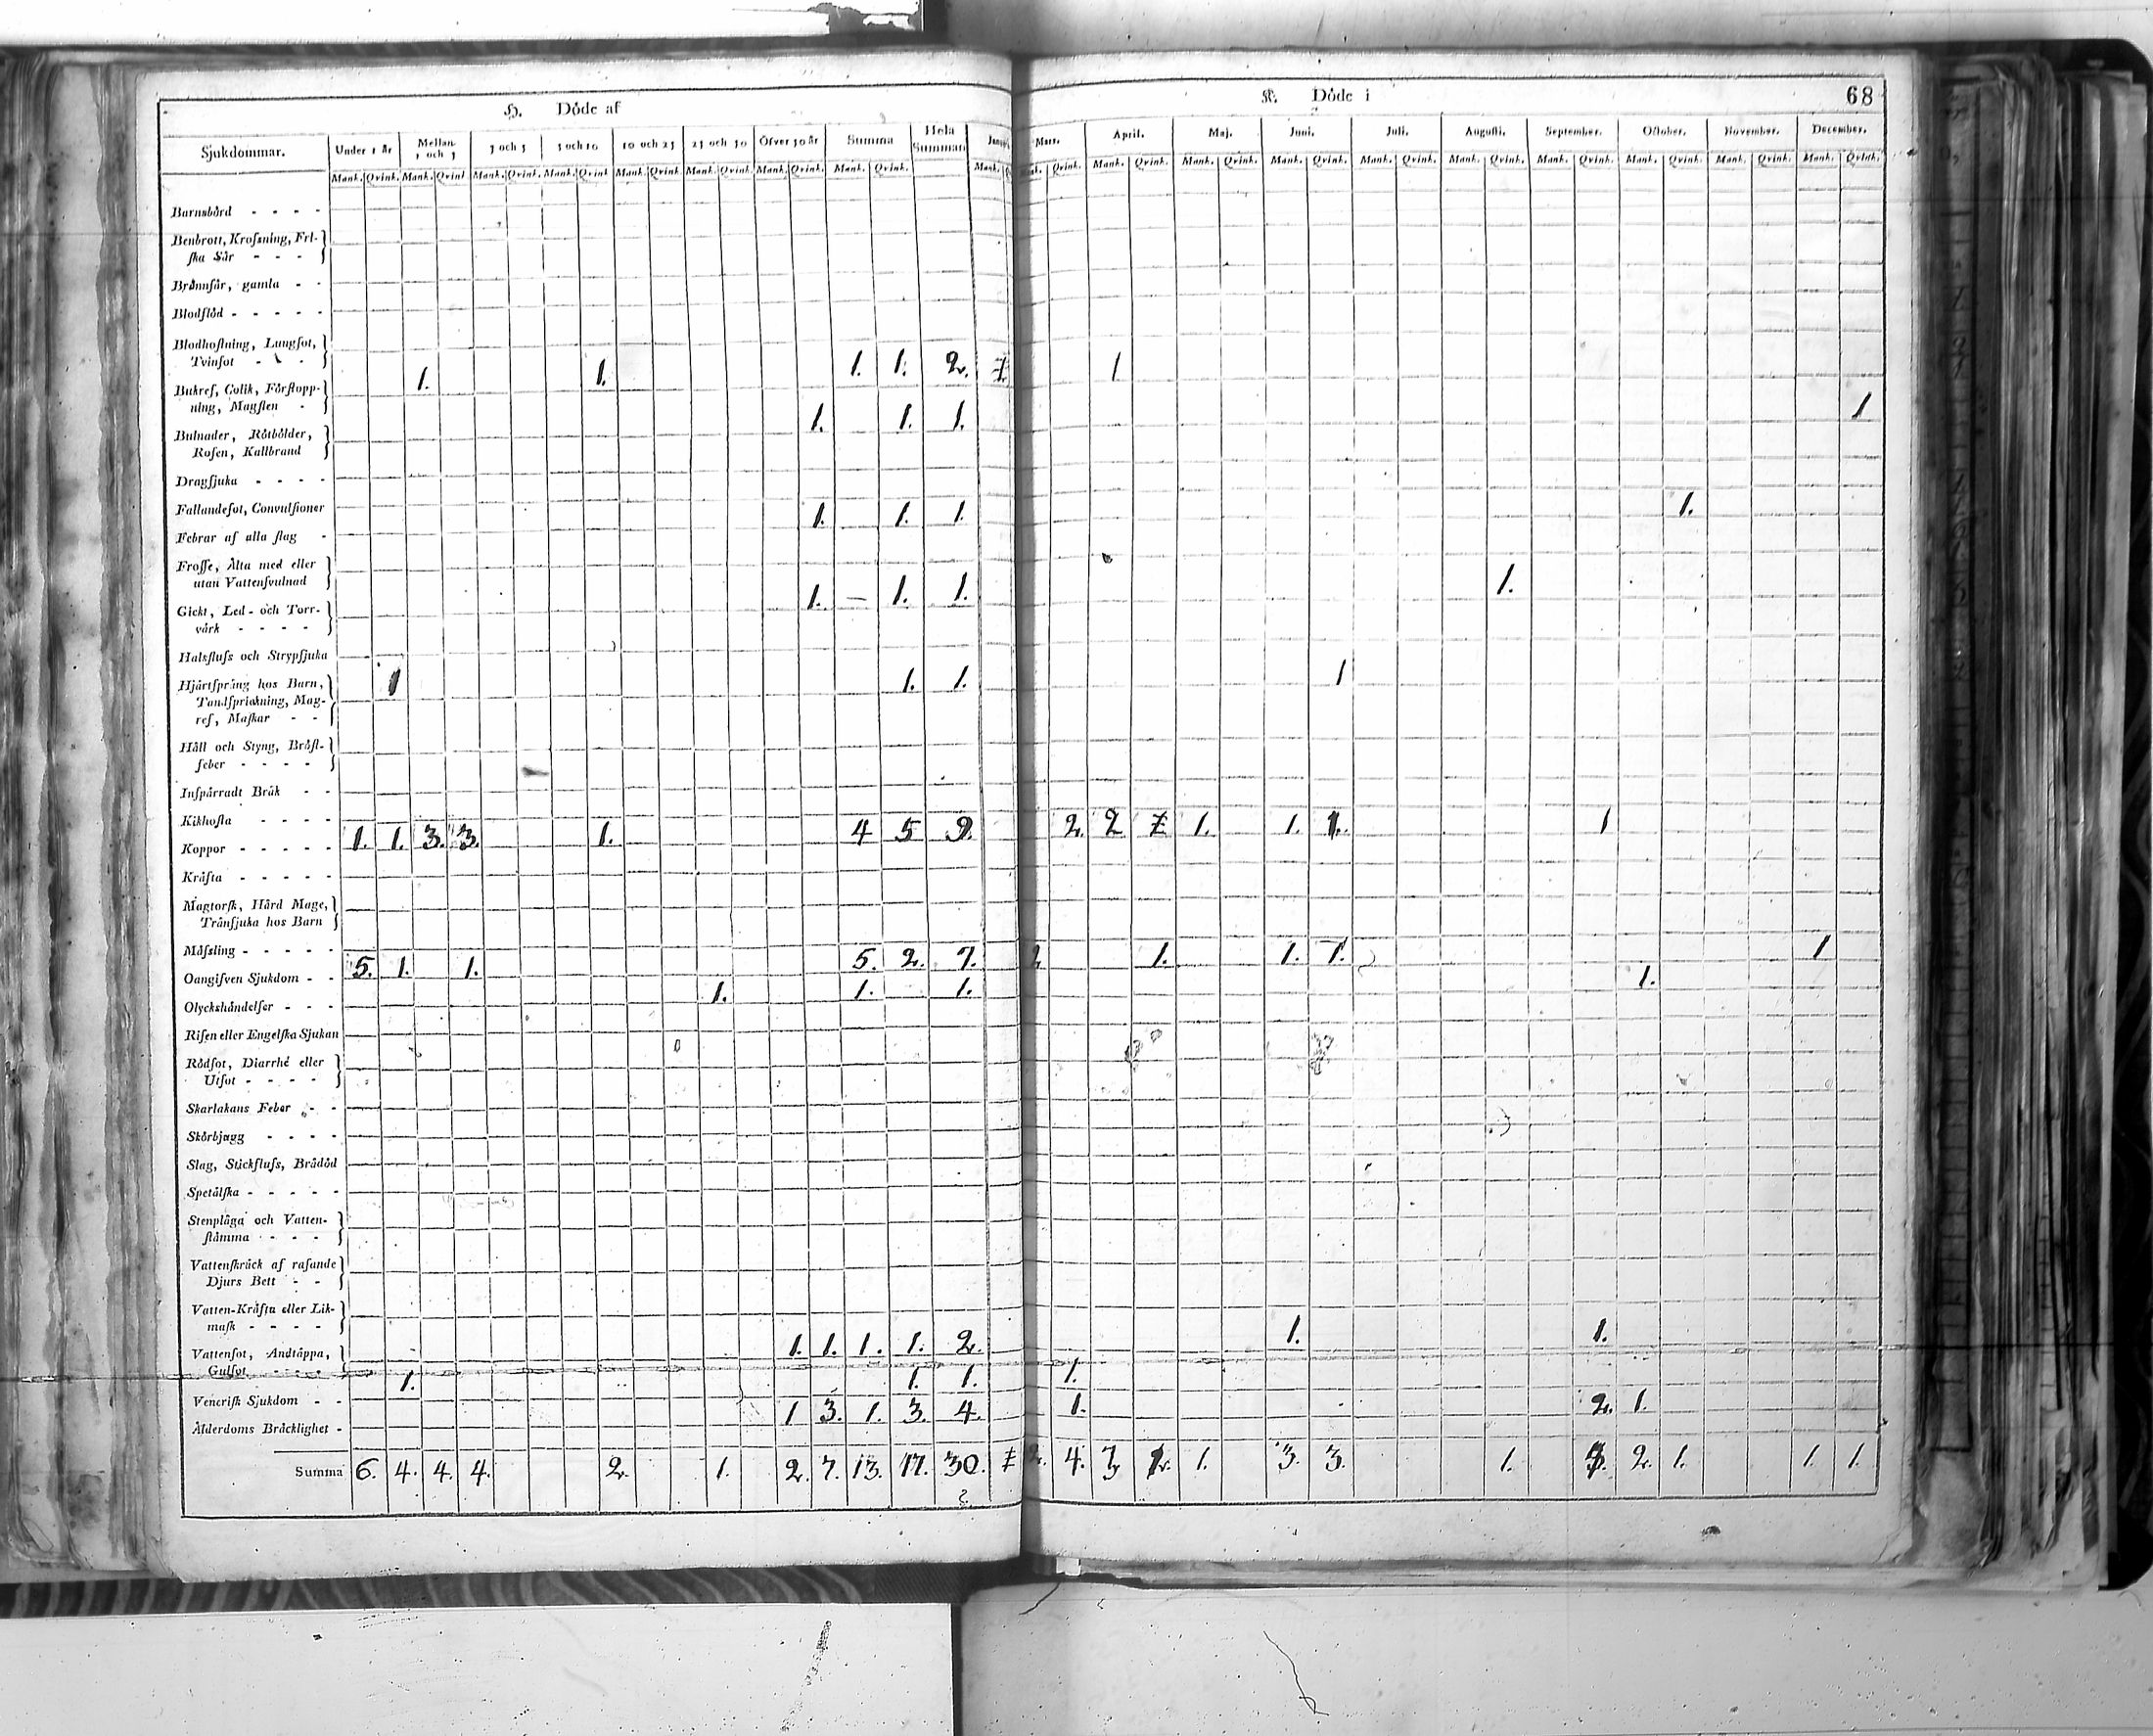 H. Döde af
K. Döde i 68
Sjukdommar. Under 1 år Mellan 1 och 3 3 och 5 5 och 10 10 och 25 25 och 50 Öfver 50 år Summa Hela Summan Mars. April. Maj. Juni. Juli. Augusti. September. October. November. December.
Mank. Qvink. Mank. Qvink Mank. Qvink. Mank. Qvink Mank. Qvink. Mank. Qvink. Mank. Qvink. Mank. Qvink. Mank. Qvink. Mank. Qvink. Mank. Qvink. Mank. Qvink. Mank. Qvink. Mank. Qvink. Mank. Qvink. Mank. Qvink. Mank. Qvink. Mank. Qvink.
Barnsbörd - - - -
Benbrott, Krofsning, Fri-
ſka Sår - - -
Brännſår, gamla - -
Blodſlöd - - - - -
Blodhoſtning, Lungſot,
Tvinſot - - - 1. 1. 1. 1. 2. 1
Bukref, Colik, Förſtopp-
ning, Magſten - 1. 1. 1. 1
Bulnader, Rötbölder,
Roſen, Kallbrand
Dragſjuka - - - -
Fallandeſot, Convulſioner 1. 1. 1. 1.
Febrar af alla ſlag -
Froſſe, Älta med eller
utan Vattenſvulnad 1. — 1. 1. 1.
Gickt, Led- och Torr-
värk - - - -
Halsfluſs och Strypſjuka
Hjärtſpräng hos Barn, 1 1. 1. 1
Tandſprickning, Mag-
ref, Maſkar - -
Håll och Styng, Bröſt-
feber - - - -
Inſpärradt Bråk - -
Kikhoſta - - - -
Koppor - - - - - 1. 1. 3. 3. 1. 4 5 9. 2. 2 1. 1. 1. 1
Kräfta - - - - -
Magtorſk, Hård Mage,
Tränſjuka hos Barn
Mäſsling - - - - -
Oangifven Sjukdom - - 5. 1. 1. 5. 2. 7. 2 1. 1. 1. 1
Olyckshändelſer - - - 1. 1. 1. 1.
Riſen eller Engelſka Sjukan
Rödſot, Diarrhé eller
Utſot - - - -
Skarlakans Feber - -
Skörbjugg - - - -
Slag, Stickfluſs, Brådöd
Spetälſka - - - - -
Stenplåga och Vatten-
ſtämma - - - -
Vattenſkräck af raſande
Djurs Bett - -
Vatten-Kräfta eller Lik-
maſk - - - -
Vattenſot, Andtäppa, 1. 1. 1. 1. 2. 1. 1.
Gulſot - - - - 1. 1. 1. 1.
Veneriſk Sjukdom - - 1 3. 1. 3. 4. 1. 2. 1.
Ålderdoms Bräcklighet -
Summa 6. 4. 4. 4. 2. 1. 2. 7. 13. 17. 30. 2. 4. 3 1. 3. 3. 1. 2. 1. 1. 1.